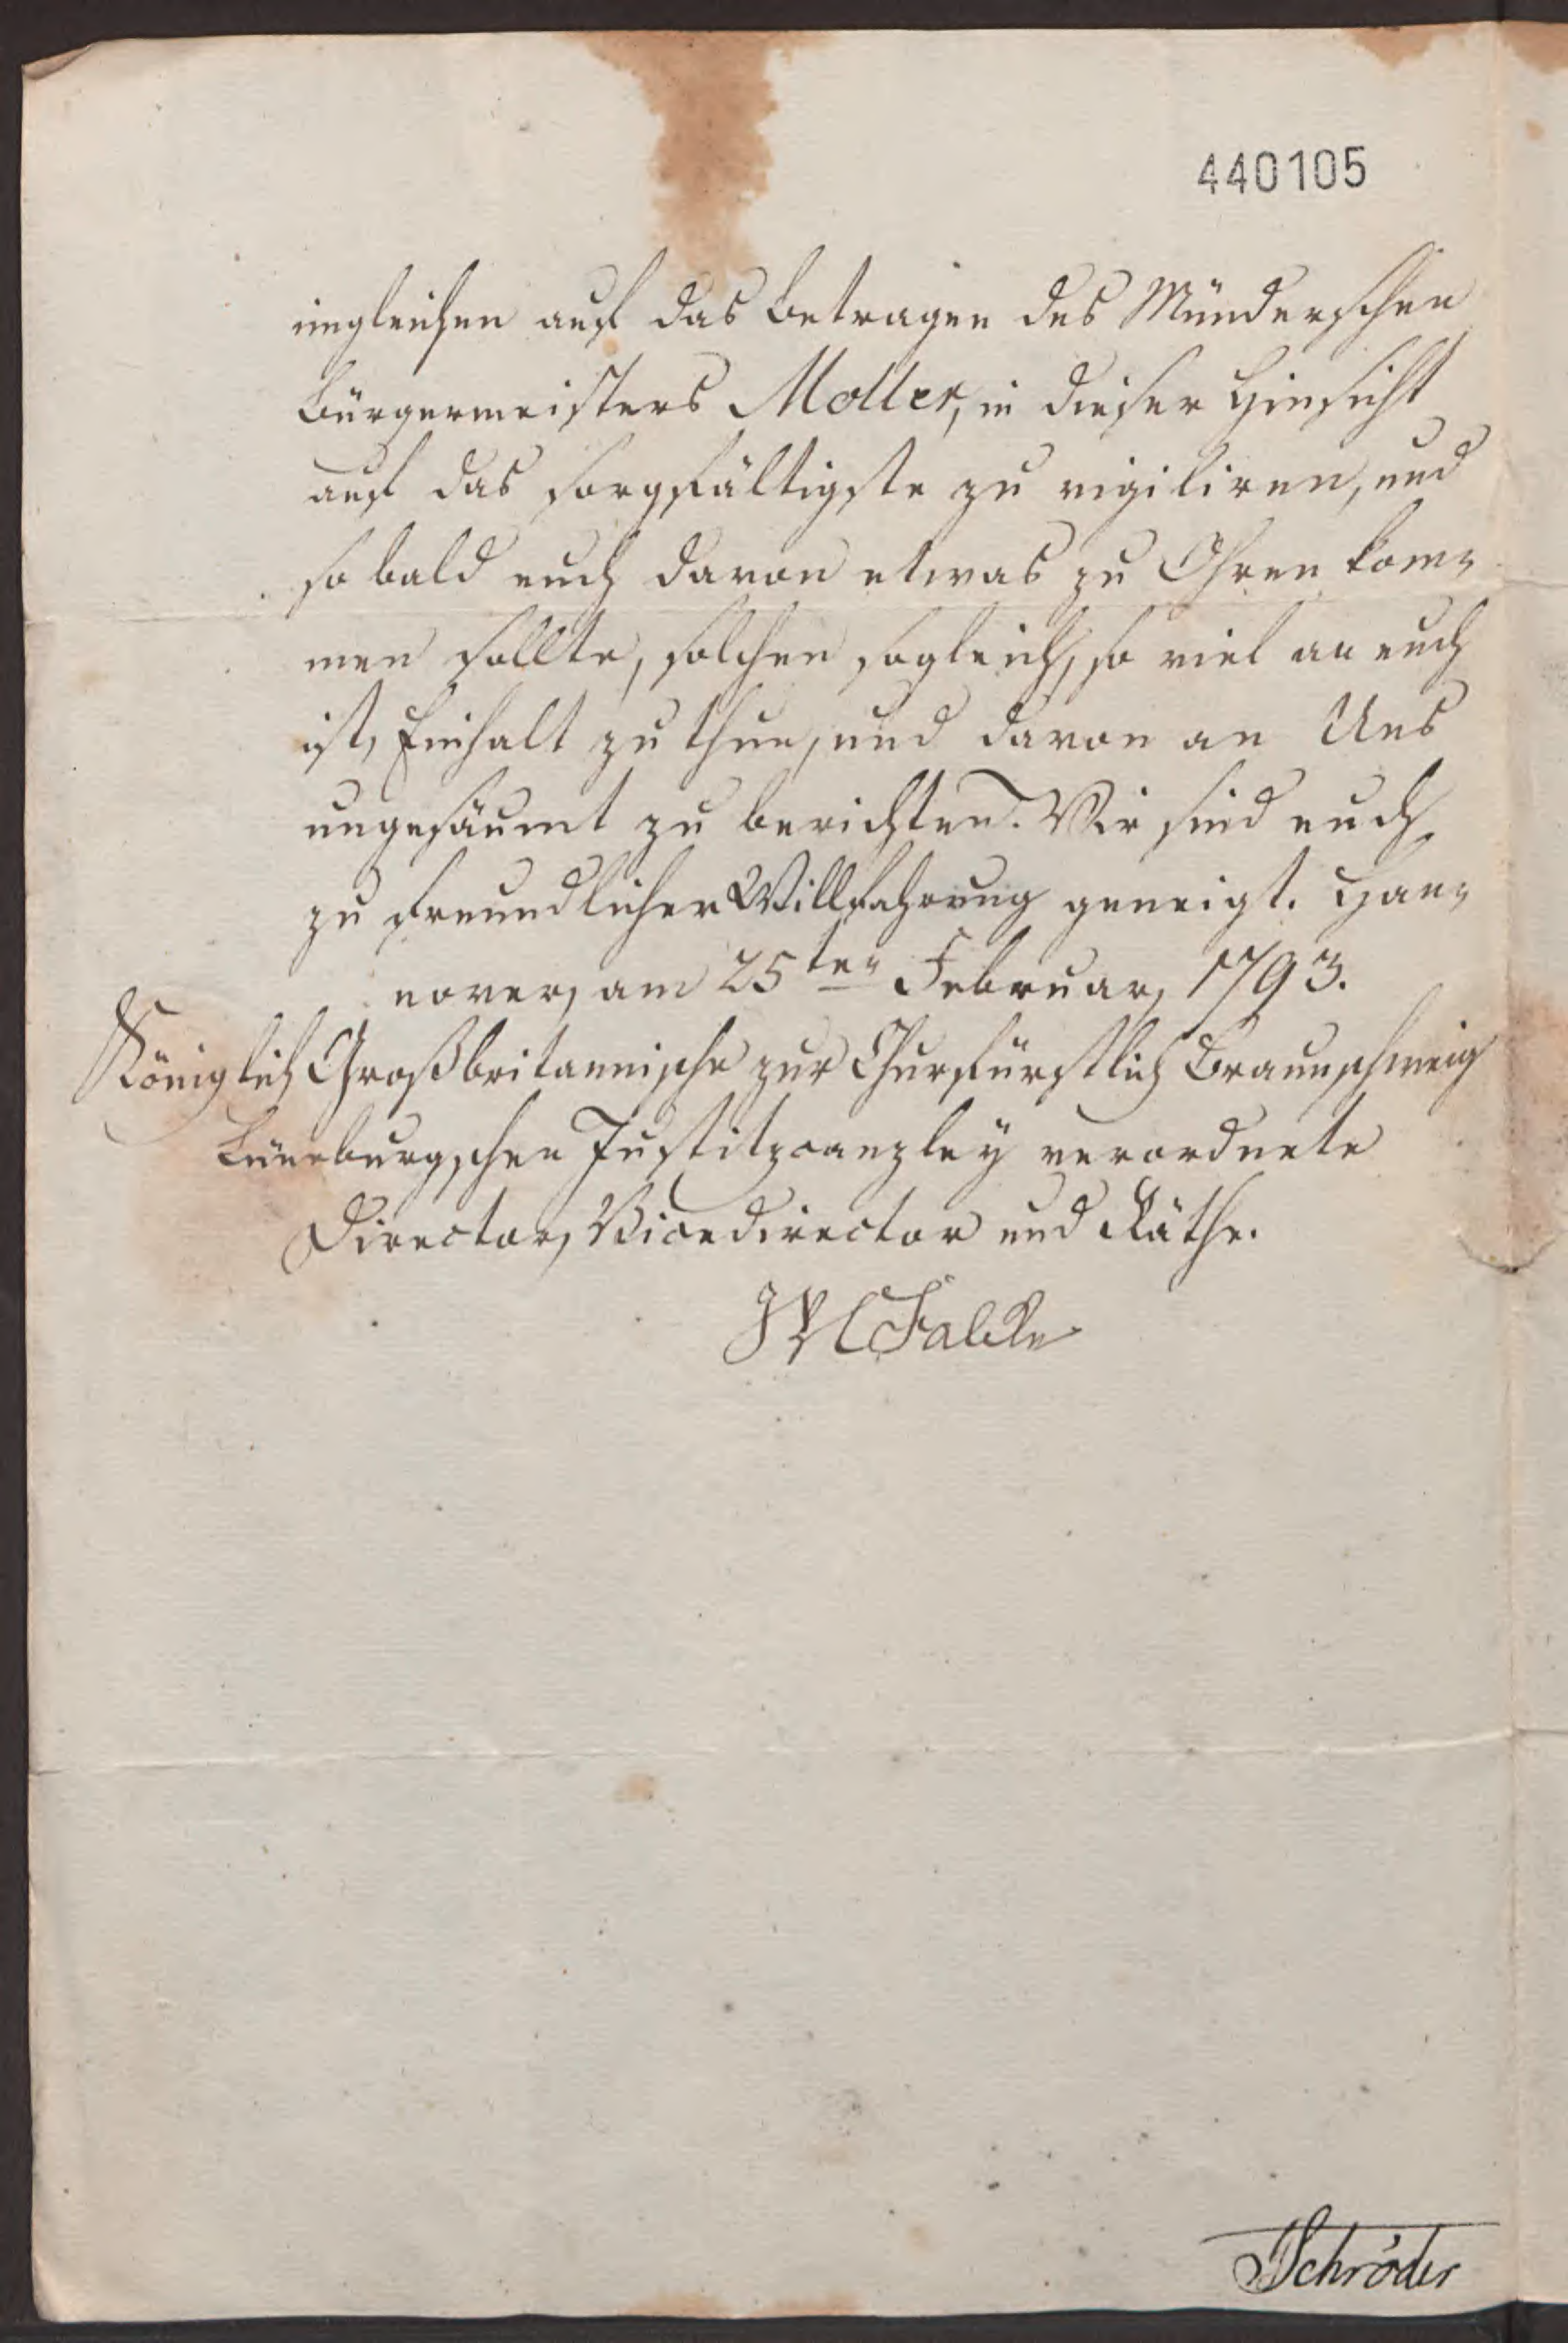 440105
imgleichen auf das Betragen des Münderschen
Bürgermeisters Moller, in dieser Hinsicht
auf das sorgfältigste zu vigiliren, und
so bald euch davon etwas zu Ohren kom-
men sollte, solchen sogleich, so viel an euch
ist, Einhalt zu thun, und davon an Uns
ungesäumt zu berichten. Wir sind euch
zu freundlicher Willfahrung geneigt. Han-
nover, am 25ten Februar, 1793.
Königlich Großbritannische zur Churfürstlich Braunschweig
Lüneburgschen Justitzcanzley verordnete
Director, Vicedirector und Räthe.
Falcke
Schröder